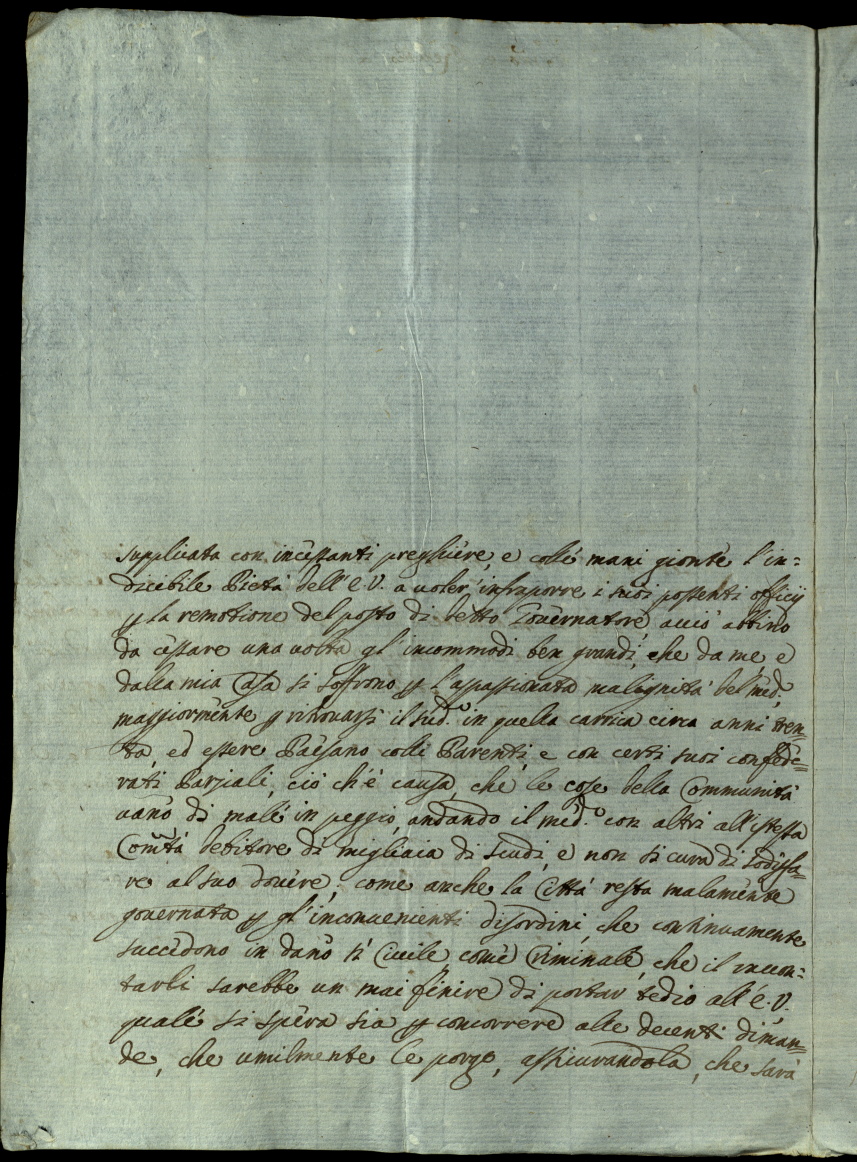 supplicata con incessanti preghiere, e colle mani gionte l'in=
dicebile Pietà dell'E.V. a voler' infraporre i suoi possenti officij
p la remotione del posto di detto Governatore, acciò abbino
da cessare una volta gl'incommodi ben grandi, che da me, e
dalla mia Casa si soffrono p l'appassionata malignità del med.º
maggiormente p ritrovarsi il sud.º in quella carrica circa anni tren=
ta, ed essere Paesano colli Parenti, e con certi suoi confede=
rati Parziali, ciò ch'è causa, che le cose della Communità
vano di male in peggio, andando il med.º con altri all'istessa
Com̃tà debitore di migliaia di scudi, e non si cura di sodisfa=
re al suo dovere; come anche la Città resta malamente
governata p gl'inconvenienti disordini, che continuamente
succedono in dano sì Civile come Criminale, che il racon=
tarli sarebbe un mai finire di portar tedio all'E.V.
quale si spera sia p concorrere alle decenti diman=
de, che umilmente le porgo, assicurandola, che sarà